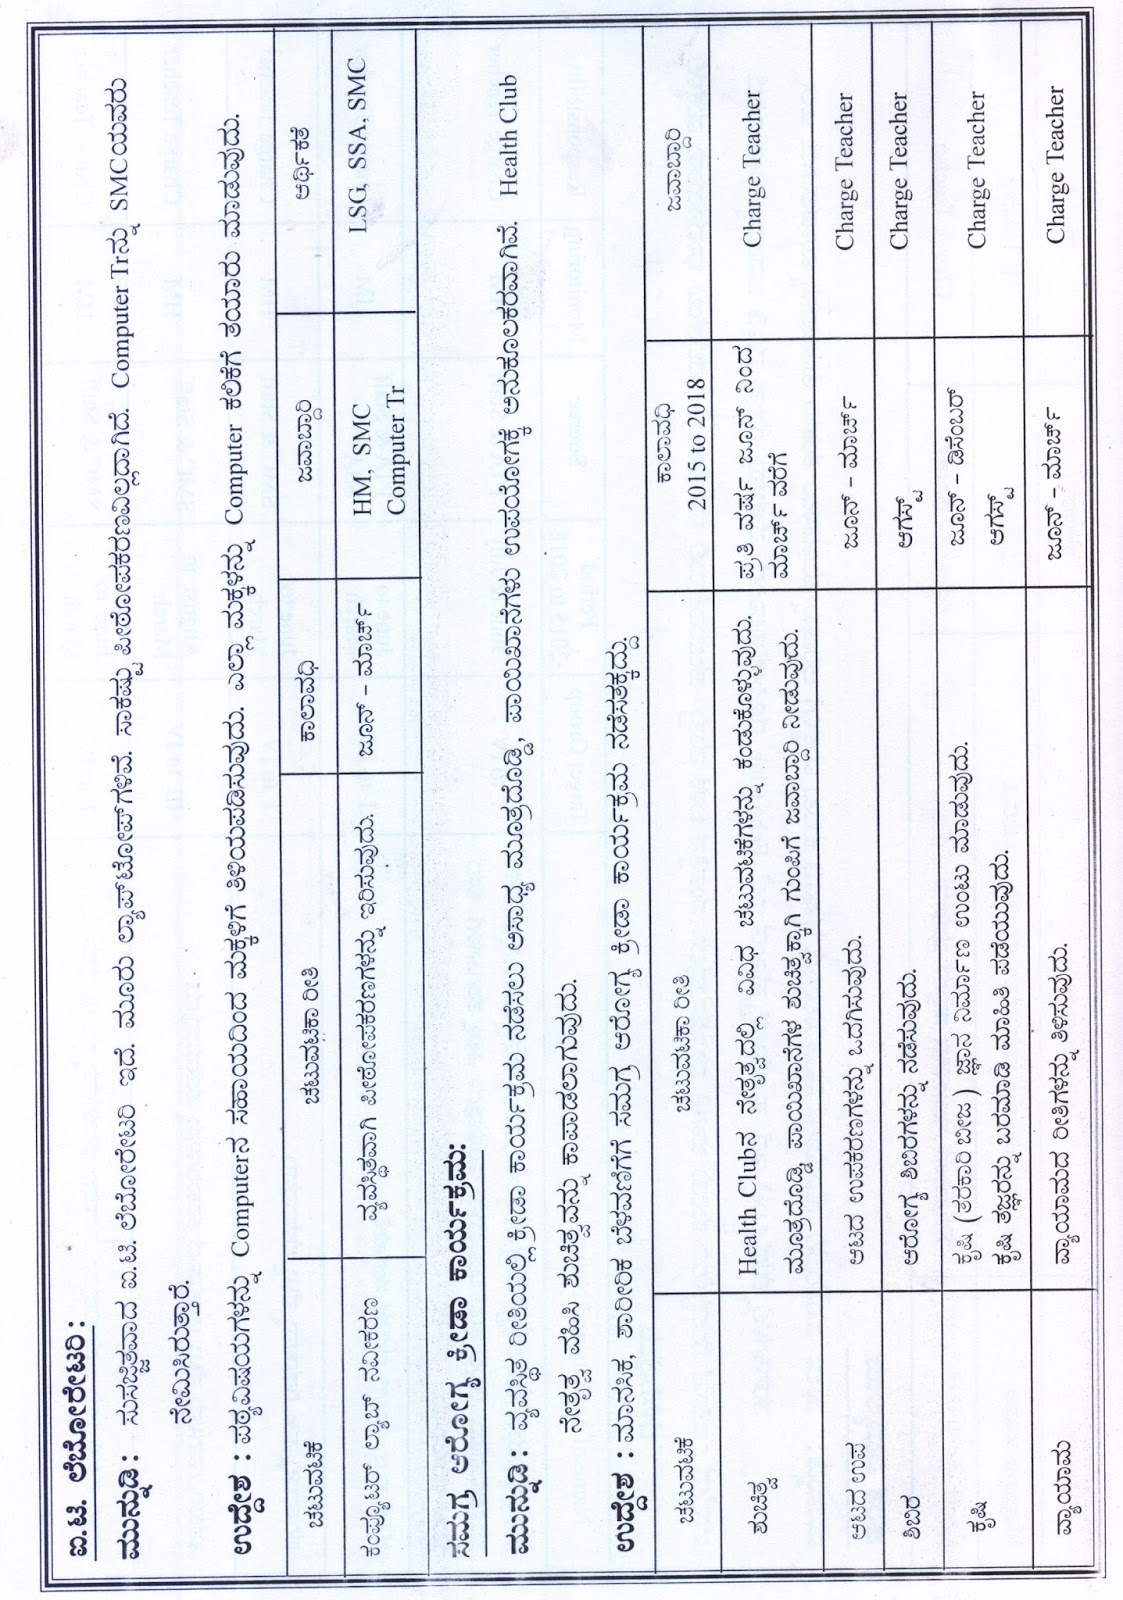 ಐ.ಟಿ. ಲೆಬೋರೇಟರಿ :
ಮುನ್ನುಡಿ : ಸುಸಜ್ಜಿತವಾದ ಐ.ಟಿ. ಲೆಬೋರೇಟರಿ ಇದೆ. ಮೂರು ಲ್ಯಾಪ್‌ಟೋಪ್‌ಗಳಿವೆ. ಸಾಕಷ್ಟು ಪೀಠೋಪಕರಣವಿಲ್ಲದಾಗಿದೆ. Computer Trನ್ನು SMCಯವರು
ನೇಮಿಸಿರುತ್ತಾರೆ.
ಉದ್ದೇಶ : ಪಠ್ಯವಿಷಯಗಳನ್ನು Computerನ ಸಹಾಯದಿಂದ ಮಕ್ಕಳಿಗೆ ತಿಳಿಯಪಡಿಸುವುದು. ಎಲ್ಲಾ ಮಕ್ಕಳನ್ನು Computer ಕಲಿಕೆಗೆ ತಯಾರು ಮಾಡುವುದು.
ಚಟುವಟಿಕೆ ಚಟುವಟಿಕಾ ರೀತಿ ಕಾಲಾವಧಿ ಜವಾಬ್ದಾರಿ ಆರ್ಥಿಕತೆ
ಕಂಪ್ಯೂಟರ್ ಲ್ಯಾಬ್ ನವೀಕರಣ ವ್ಯವಸ್ಥಿತವಾಗಿ ಪೀಠೋಪಕರಣಗಳನ್ನು ಇರಿಸುವುದು. ಜೂನ್ – ಮಾರ್ಚ್ HM, SMC LSG, SSA, SMC
Computer Tr
ಸಮಗ್ರ ಆರೋಗ್ಯ ಕ್ರೀಡಾ ಕಾರ್ಯಕ್ರಮ:
ಮುನ್ನುಡಿ : ವ್ಯವಸ್ಥಿತ ರೀತಿಯಲ್ಲಿ ಕ್ರೀಡಾ ಕಾರ್ಯಕ್ರಮ ನಡೆಸಲು ಅಸಾಧ್ಯ ಮೂತ್ರದೊಡ್ಡಿ, ಪಾಯಿಖಾನೆಗಳು ಉಪಯೋಗಕ್ಕೆ ಅನುಕೂಲಕರವಾಗಿವೆ. Health Club
ನೇತೃತ್ವ ವಹಿಸಿ ಶುಚಿತ್ವವನ್ನು ಕಾಪಾಡಲಾಗುವುದು.
ಉದ್ದೇಶ : ಮಾನಸಿಕ, ಶಾರೀರಿಕ ಬೆಳವಣಿಗೆಗೆ ಸಮಗ್ರ ಆರೋಗ್ಯ ಕ್ರೀಡಾ ಕಾರ್ಯಕ್ರಮ ನಡೆಸತಕ್ಕದ್ದು.
ಚಟುವಟಿಕೆ ಚಟುವಟಿಕಾ ರೀತಿ ಕಾಲಾವಧಿ ಜವಾಬ್ದಾರಿ
2015 to 2018
ಶುಚಿತ್ವ Health Clubನ ನೇತೃತ್ವದಲ್ಲಿ ವಿವಿಧ ಚಟುವಟಿಕೆಗಳನ್ನು ಕಂಡುಕೊಳ್ಳುವುದು. ಪ್ರತಿ ವರ್ಷ ಜೂನ್ ನಿಂದ Charge Teacher
ಮೂತ್ರದೊಡ್ಡಿ ಪಾಯಿಖಾನೆಗಳ ಶುಚಿತ್ವಕ್ಕಾಗಿ ಗುಂಪಿಗೆ ಜವಾಬ್ದಾರಿ ನೀಡುವುದು. ಮಾರ್ಚ್ ವರೆಗೆ
ಆಟದ ಉಪ ಆಟದ ಉಪಕರಣಗಳನ್ನು ಒದಗಿಸುವುದು. ಜೂನ್ – ಮಾರ್ಚ್ Charge Teacher
ಶಿಬಿರ ಆರೋಗ್ಯ ಶಿಬಿರಗಳನ್ನು ನಡೆಸುವುದು. ಆಗಸ್ಟ್ Charge Teacher
ಕೃಷಿ ಕೃಷಿ (ತರಕಾರಿ ಬೀಜ ) ಜ್ಞಾನ ನಿರ್ಮಾಣ ಉಂಟು ಮಾಡುವುದು. ಜೂನ್ – ಡಿಸೆಂಬರ್ Charge Teacher
ಕೃಷಿ ತಜ್ಞರನ್ನು ಬರಮಾಡಿ ಮಾಹಿತಿ ಪಡೆಯುವುದು. ಆಗಸ್ಟ್
ವ್ಯಾಯಾಮ ವ್ಯಾಯಾಮದ ರೀತಿಗಳನ್ನು ತಿಳಿಸುವುದು. ಜೂನ್ – ಮಾರ್ಚ್ Charge Teacher